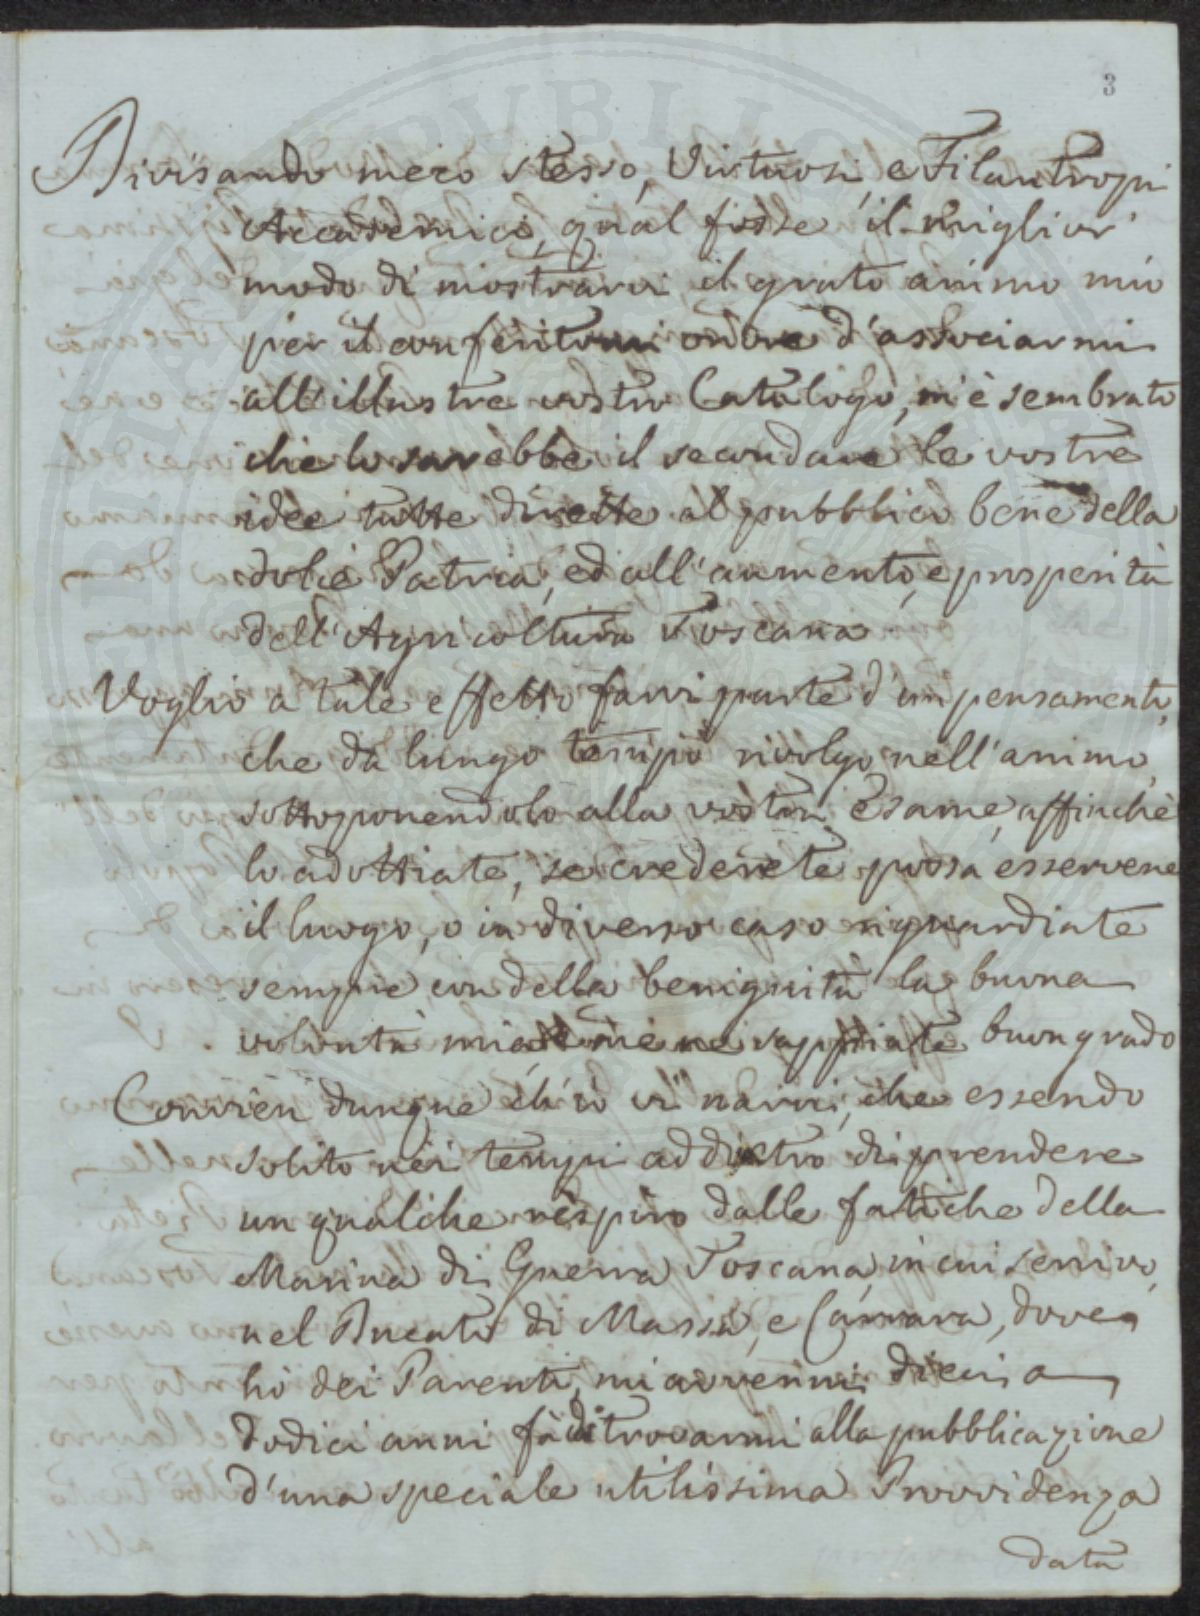 3
Divisando meco stesso, Virtuosi, e Filantropi
Accademici, qual fosse il miglior
modo di mostrarvi il grato animo mio
per il conferitomi onore d'associarmi
all'illustre vostro Catalogo, m'è sembrato
che lo sarebbe il secondare le vostre
idee tutte dirette al pubblico bene della
dolce Patria, ed all'aumento, e prosperità
dell'Agricoltura Toscana
Voglio a tale effetto farvi parte d'un pensamento,
che da lungo tempo rivolgo nell'animo,
sottoponendolo alla vostra Esame, affinchè
lo adottiate, se crederete possa esservene
il luogo, o in diverso caso riguardiate
sempre con della benignità la buona
volontà mia e me ne sappiate buon grado
Convien dunque ch'io vi narri, che essendo
solito nei tempi addietro di prendere
un qualche respiro dalle fatiche della
Marina di Guerra Toscana, in cui servivo,
nel Ducato di Massa, e Carrara, dove
ho dei Parenti, mi avvenni dieci a
dodici anni fà di trovarmi alla pubblicazione
d'una speciale utilissima Provvidenza
data